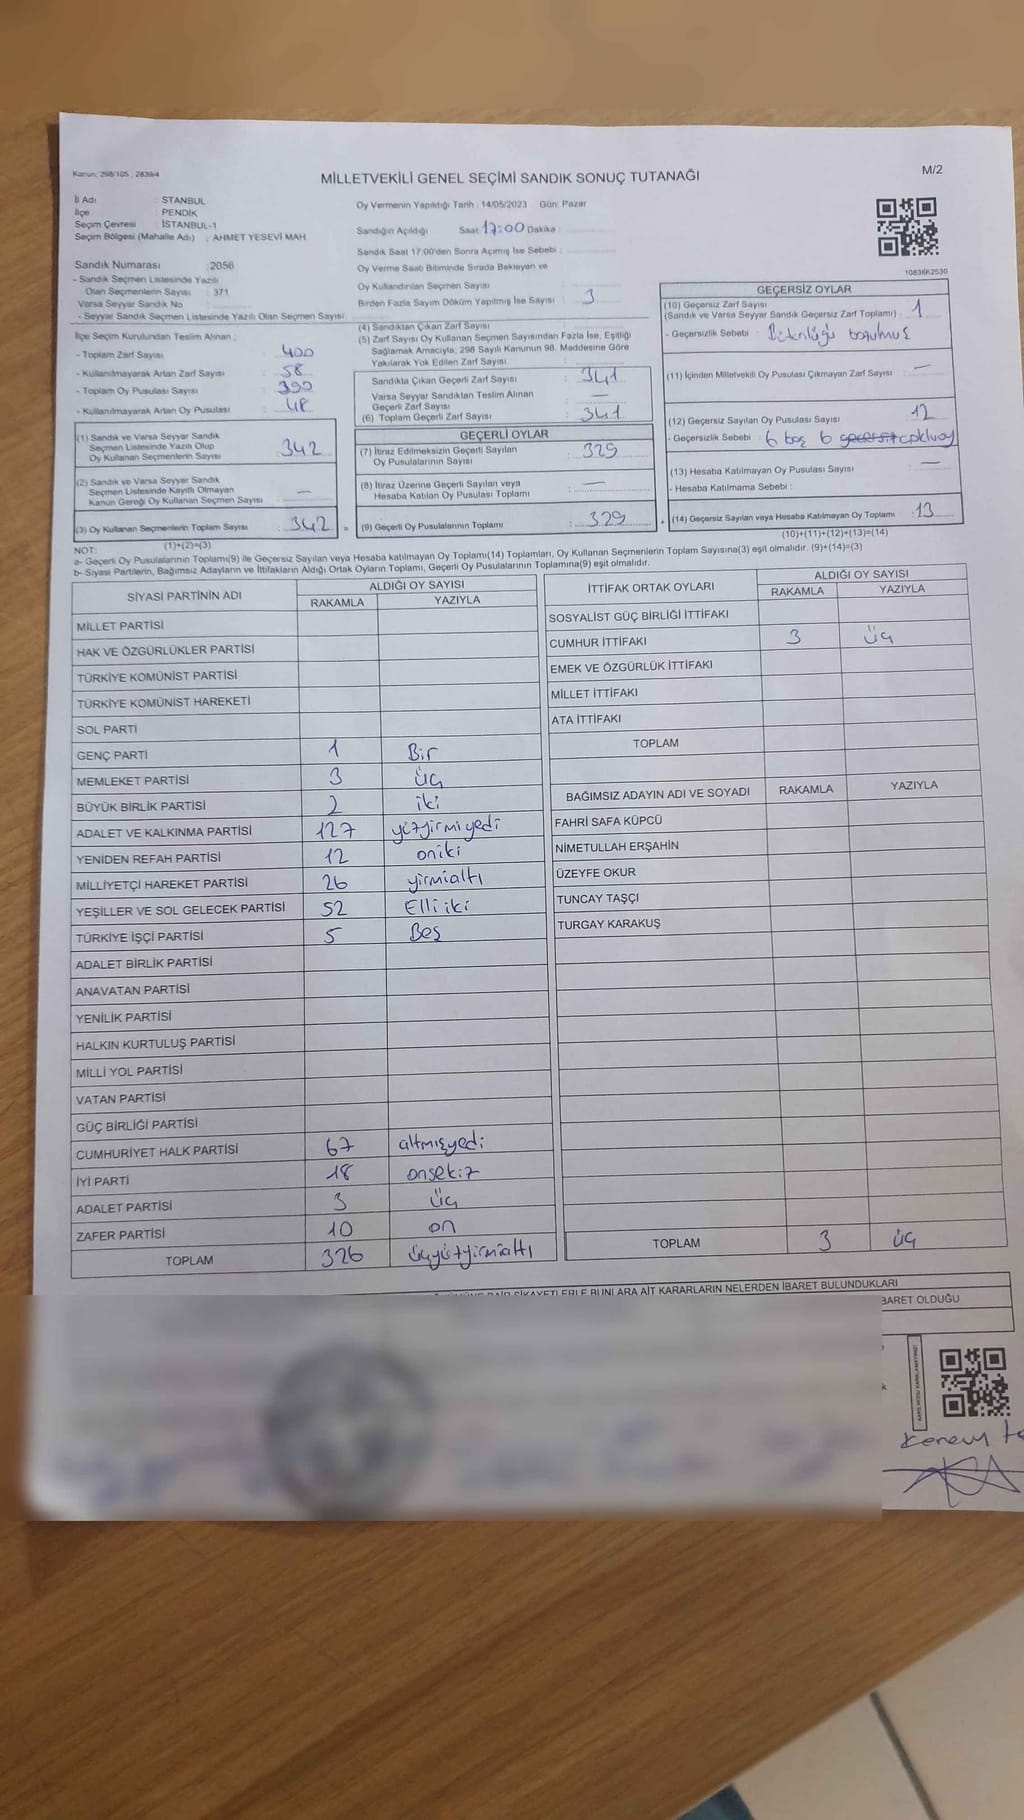 Kanun; 298/105 , 2839/4
MİLLETVEKİLİ GENEL SEÇİMİ SANDIK SONUÇ TUTANAĞI
M/2
İl Adı : STANBUL
İlçe : PENDİK
Seçim Çevresi : İSTANBUL-1
Seçim Bölgesi (Mahalle Adı) : AHMET YESEVİ MAH.
Sandık Numarası :2056
- Sandık Seçmen Listesinde Yazılı
Olan Seçmenlerin Sayısı : 371
Varsa Seyyar Sandık No
- Seyyar Sandık Seçmen Listesinde Yazılı Olan Seçmen Sayısı:
İlçe Seçim Kurulundan Teslim Alınan ;
- Toplam Zarf Sayısı : 400
- Kullanılmayarak Artan Zarf Sayısı : 58
- Toplam Oy Pusulası Sayısı : 390
- Kullanılmayarak Artan Oy Pusulası : 48
(1) Sandık ve Varsa Seyyar Sandık
Seçmen Listesinde Yazılı Olup
Oy Kullanan Seçmenlerin Sayısı : 342
(2) Sandık ve Varsa Seyyar Sandık
Seçmen Listesinde Kayıtlı Olmayan
Kanun Gereği Oy Kullanan Seçmen Sayısı : —
(3) Oy Kullanan Seçmenlerin Toplam Sayısı : 342 =
(1)+(2)=(3)
Oy Vermenin Yapıldığı Tarih : 14/05/2023 Gün: Pazar
Sandığın Açıldığı Saat 17:00 Dakika :
Sandık Saat 17:00'den Sonra Açımış İse Sebebi :
Oy Verme Saati Bitiminde Sırada Bekleyen ve
Oy Kullandırılan Seçmen Sayısı :
Birden Fazla Sayım Döküm Yapılmış İse Sayısı : 3
(4) Sandıktan Çıkan Zarf Sayısı :
(5) Zarf Sayısı Oy Kullanan Seçmen Sayısından Fazla İse, Eşitliği
Sağlamak Amacıyla; 298 Sayılı Kanunun 98. Maddesine Göre
Yakılarak Yok Edilen Zarf Sayısı :
Sandıkta Çıkan Geçerli Zarf Sayısı : 341
Varsa Seyyar Sandıktan Teslim Alınan
Geçerli Zarf Sayısı : —
(6) Toplam Geçerli Zarf Sayısı : 341
GEÇERLİ OYLAR
(7) İtiraz Edilmeksizin Geçerli Sayılan
Oy Pusulalarının Sayısı : 329
(8) İtiraz Üzerine Geçerli Sayılan veya
Hesaba Katılan Oy Pusulası Toplamı : —
(9) Geçerli Oy Pusulalarının Toplamı : 329 +
1083662530
GEÇERSİZ OYLAR
(10) Geçersiz Zarf Sayısı
(Sandık ve Varsa Seyyar Sandık Geçersiz Zarf Toplamı) : 1
- Geçersizlik Sebebi : Bütünlüğü bozulmuş
(11) İçinden Milletvekili Oy Pusulası Çıkmayan Zarf Sayısı : —
(12) Geçersiz Sayılan Oy Pusulası Sayısı : 12
- Geçersizlik Sebebi : 6 boş 6 geçersiz çoklu oy
(13) Hesaba Katılmayan Oy Pusulası Sayısı : —
- Hesaba Katılmama Sebebi :
(14) Geçersiz Sayılan veya Hesaba Katılmayan Oy Toplamı : 13
(10)+(11)+(12)+(13)=(14)
NOT:
a- Geçerli Oy Pusulalarının Toplamı(9) ile Geçersiz Sayılan veya Hesaba Katılmayan Oy Toplamı(14) Toplamları, Oy Kullanan Seçmenlerin Toplam Sayısına(3) eşit olmalıdır. (9)+(14)=(3)
b- Siyasi Partilerin, Bağımsız Adayların ve İttifakların Aldığı Ortak Oyların Toplamı, Geçerli Oy Pusulalarının Toplamına(9) eşit olmalıdır.
SİYASİ PARTİNİN ADI
ALDIĞI OY SAYISI
RAKAMLA YAZIYLA
MİLLET PARTİSİ
HAK VE ÖZGÜRLÜKLER PARTİSİ
TÜRKİYE KOMÜNİST PARTİSİ
TÜRKİYE KOMÜNİST HAREKETİ
SOL PARTİ
GENÇ PARTİ 1 Bir
MEMLEKET PARTİSİ 3 üç
BÜYÜK BİRLİK PARTİSİ 2 iki
ADALET VE KALKINMA PARTİSİ 127 yüzyirmiyedi
YENİDEN REFAH PARTİSİ 12 oniki
MİLLİYETÇİ HAREKET PARTİSİ 26 yirmialtı
YEŞİLLER VE SOL GELECEK PARTİSİ 52 Elli iki
TÜRKİYE İŞÇİ PARTİSİ 5 Beş
ADALET BİRLİK PARTİSİ
ANAVATAN PARTİSİ
YENİLİK PARTİSİ
HALKIN KURTULUŞ PARTİSİ
MİLLİ YOL PARTİSİ
VATAN PARTİSİ
GÜÇ BİRLİĞİ PARTİSİ
CUMHURİYET HALK PARTİSİ 67 altmışyedi
İYİ PARTİ 18 onsekiz
ADALET PARTİSİ 3 üç
ZAFER PARTİSİ 10 on
TOPLAM 326 üçyüzyirmialtı
İTTİFAK ORTAK OYLARI
ALDIĞI OY SAYISI
RAKAMLA YAZIYLA
SOSYALİST GÜÇ BİRLİĞİ İTTİFAKI
CUMHUR İTTİFAKI 3 üç
EMEK VE ÖZGÜRLÜK İTTİFAKI
MİLLET İTTİFAKI
ATA İTTİFAKI
TOPLAM
BAĞIMSIZ ADAYIN ADI VE SOYADI RAKAMLA YAZIYLA
FAHRİ SAFA KÜPCÜ
NİMETULLAH ERŞAHİN
ÜZEYFE OKUR
TUNCAY TAŞÇI
TURGAY KARAKUŞ
TOPLAM 3 üç
ŞİKAYETLERLE BUNLARA AİT KARARLARIN NELERDEN İBARET BULUNDUKLARI
BARET OLDUĞU